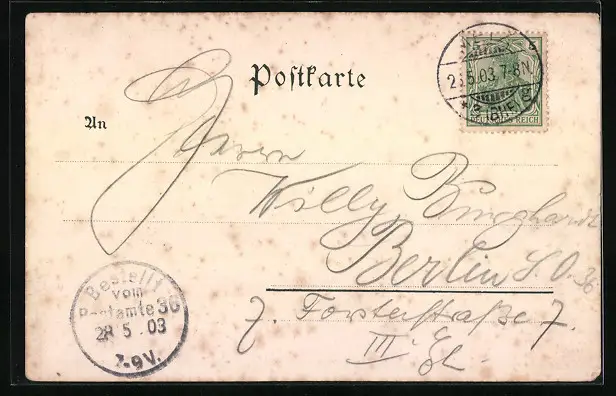 Postkarte
2 .5.03.7-8N.
REICH
An
Herrn
Willy Burghardt
Berlin S.O. 36
7. Forsterstraße 7.
III. Egl.
Bestellt
vom
Postamte 36
28 5 03
7-9V.